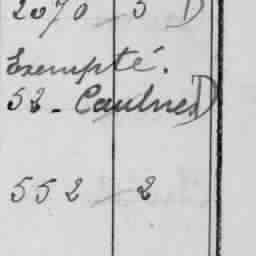 2070 - 5 D
Exempté.
52 - Caulnes D
552 - 2